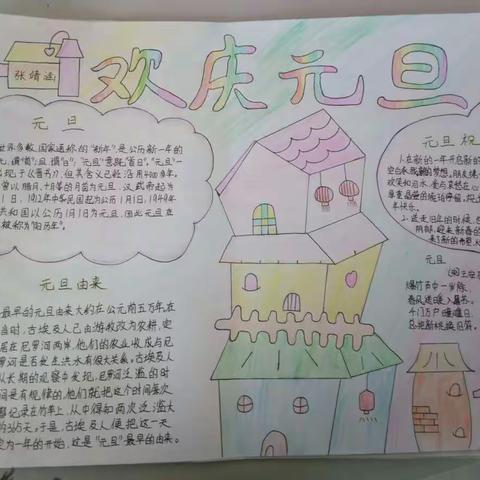 欢庆元旦
张靖涵
元旦
世界多数国家通称的“新年”,是公历新一年的
元,谓“首”;旦,谓“日”;“元旦”意即“首日”。“元旦”一
现于《晋书》,但其含义已经沿用4000多年。
曾以腊月、十月等的月首为元旦,汉武帝起为
1日,1912年中华民国起为公历1月1日,1949年
共和国以公历1月1日为元旦,因此元旦在
被称为“阳历年”。
元旦由来
最早的元旦由来大约在公元前五万年。在
当时,古埃及人已由游牧改为农耕,定
居在尼罗河两岸,他们的农业收成与尼
罗河是否发生洪水有很大关系。古埃及人
从长期的观察中发现,尼罗河泛滥的时
间是有规律的,他们就把这个时间每次
都记录在竹竿上,从中得知两次泛滥大
约365天。于是,古埃及人便把这一天
定为一年的开始,这是“元旦”最早的由来。
元旦祝
1.在新的一年开启新的
空白承载新的梦想。朋友
欢笑和泪水,
年快乐。
2.送去旧年的时候,
阴郁,迎来新春的
来了新的希望,
元旦
爆竹声中一岁除,
春风送暖入屠苏。
千门万户曈曈日,
总把新桃换旧符。